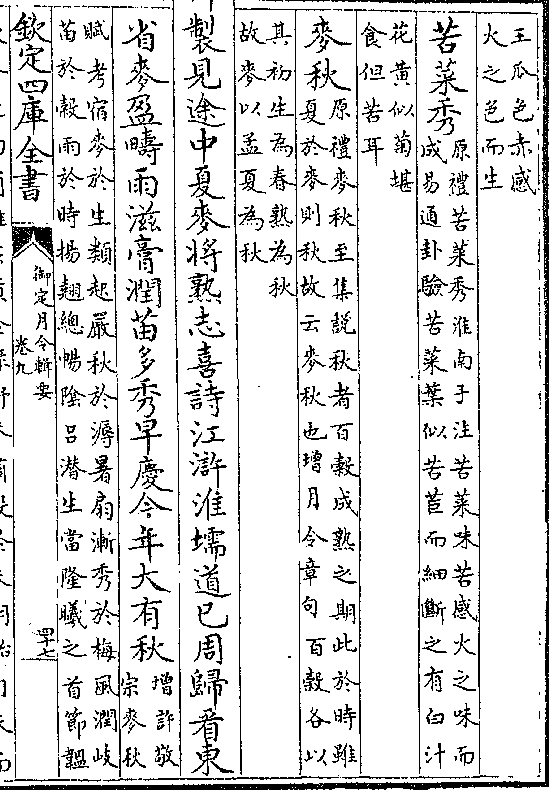 王瓜色赤感
火之色而生
苦菜秀原禮苦菜秀淮南子注苦菜味苦感火之味而
成易通卦驗苦菜葉似苦苣而細斷之有白汁
花黄似菊堪
食但苦耳
麥秋原禮麥秋至集説秋者百穀成熟之期此於時雖
夏於麥則秋故云麥秋也增月令章句百穀各以
其初生為春熟為秋
故麥以孟夏為秋
製見途中夏麥將熟志喜詩江滸淮壖道已周歸看東
省麥盈疇雨滋膏潤苗多秀早慶今年大有秋增許敬
宗麥秋
賦考宿麥於生類起嚴秋於溽暑扇漸秀於梅風潤岐
苗於穀雨於時揚翹總暢陰呂潜生當隆曦之首節韞
欽定四庫全書
御定月令輯要
卷九
四十七